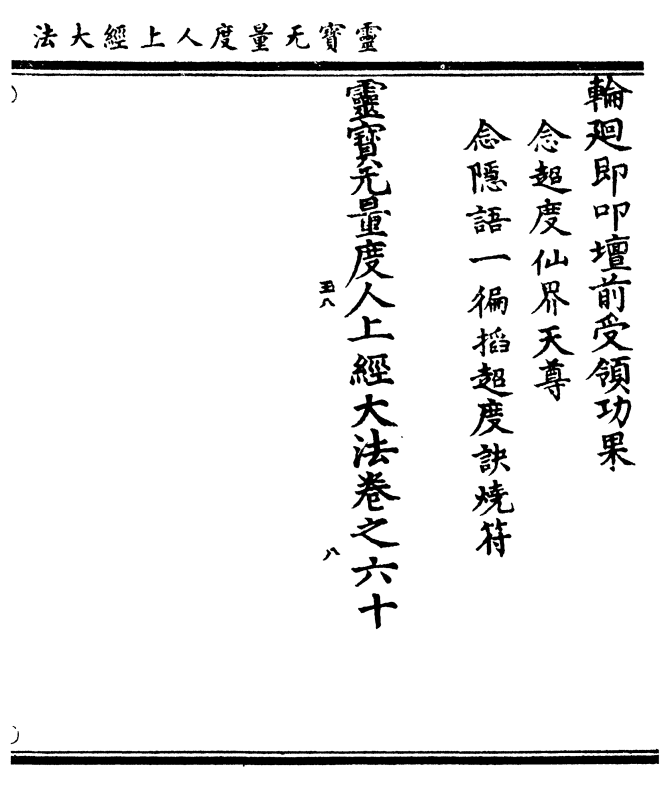 靈寶无量度人上經大法
輪廻即叩壇前受領功果
念超度仙界天尊
念隱語一徧搯超度訣燒符
靈寶无量度人上經大法卷之六十
玉八
八